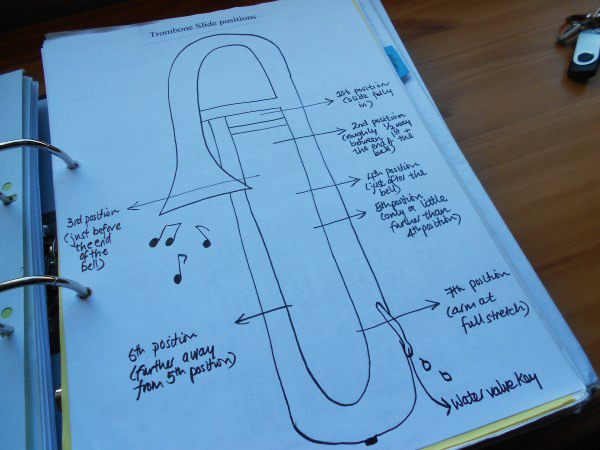 Trombone Slide positions
1st position
(slide fully
in)
2nd position
(roughly 1/2 way
between 1st +
the end of the
bell)
4th position
(just after the
bell)
5th position
(only a little
further than
4th position)
3rd position
(just before
the end
of the
bell)
7th position
(arm at
full stretch)
6th position
(further away
from 5th position)
Water valve key